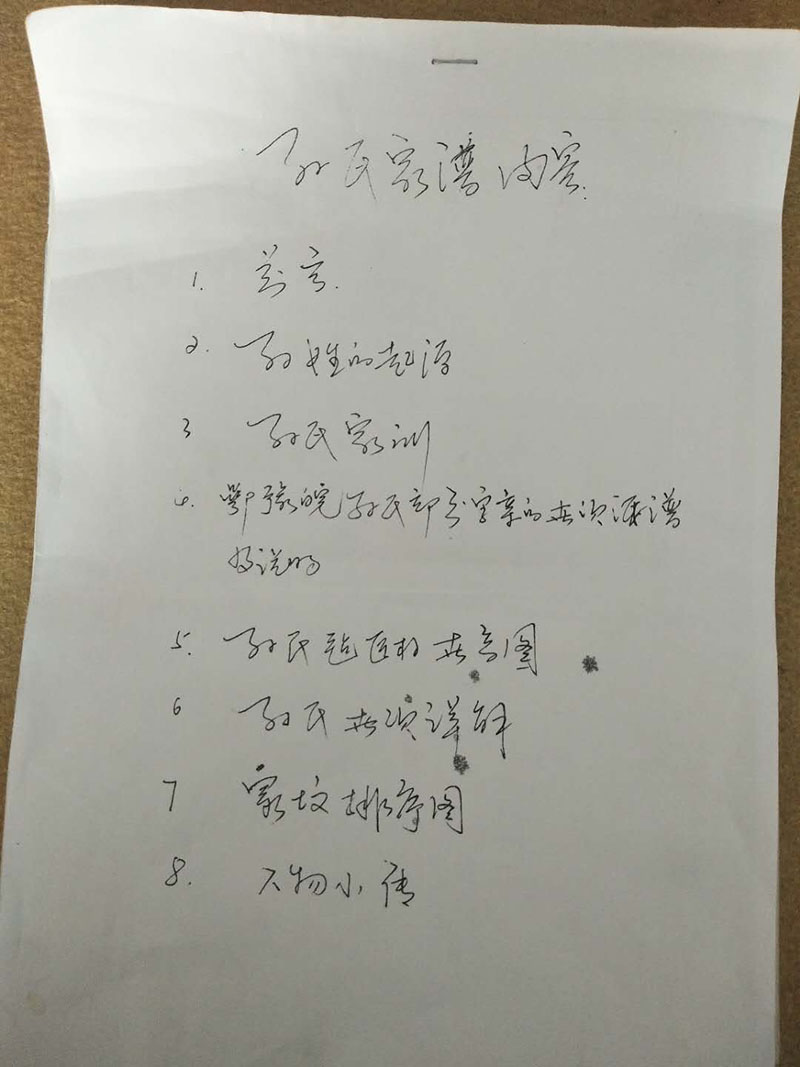 孙氏家谱内容.
1. 前言.
2. 孙姓的起源
3 孙氏家训
4. 鄂豫皖孙氏部分宗亲的世次派谱
及说明
5. 孙氏毡匠村世系图
6 孙氏世次详解
7 家坟排序图
8. 人物小传